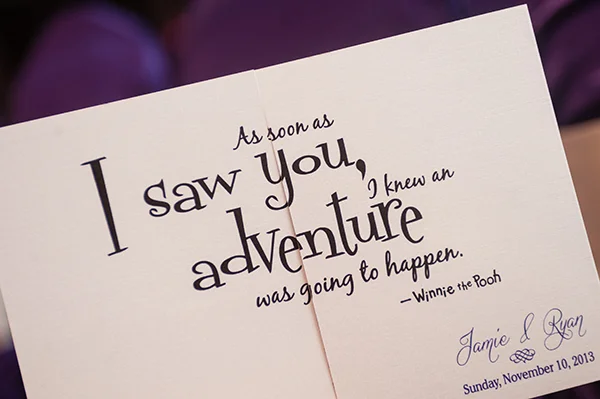 As soon as
I saw you,
I knew an
adventure
was going to happen.
—Winnie the Pooh
Jamie & Ryan
Sunday, November 10, 2013